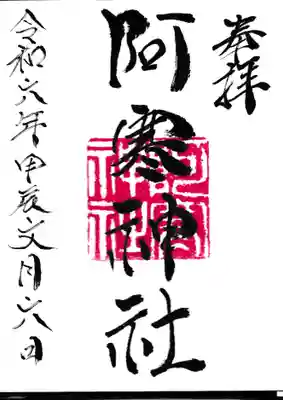 奉拝
阿寒神社
令和六年甲辰文月六日
阿寒神社